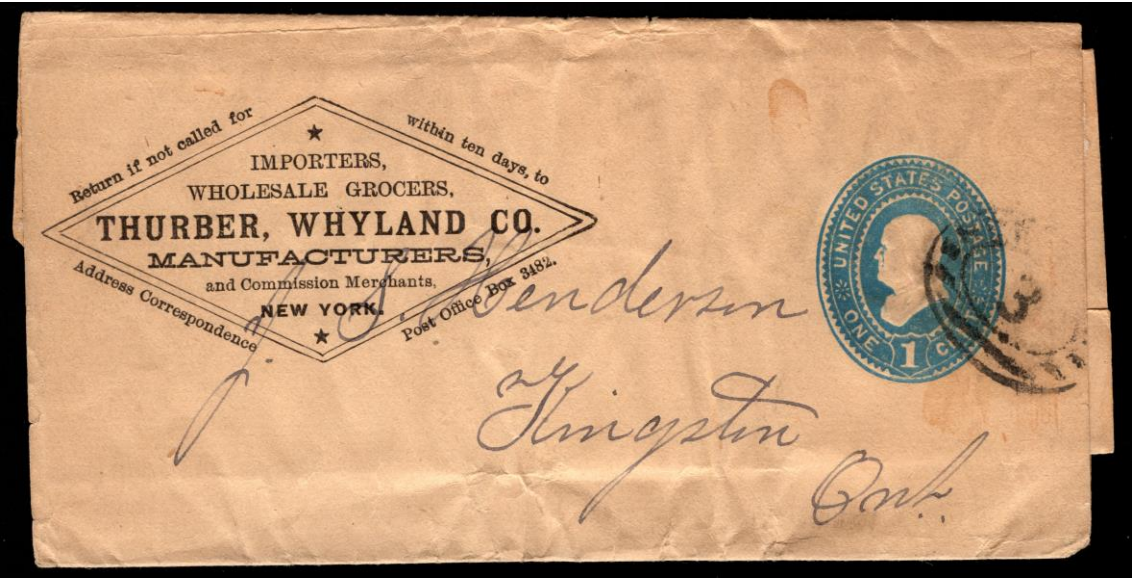 Return if not called for within ten days, to
IMPORTERS,
WHOLESALE GROCERS,
THURBER, WHYLAND CO.
MANUFACTURERS,
and Commission Merchants,
NEW YORK.
Address Correspondence Post Office Box 3482.
UNITED STATES POSTAGE
ONE 1
J. S. Henderson
Kingston
Ont.
3